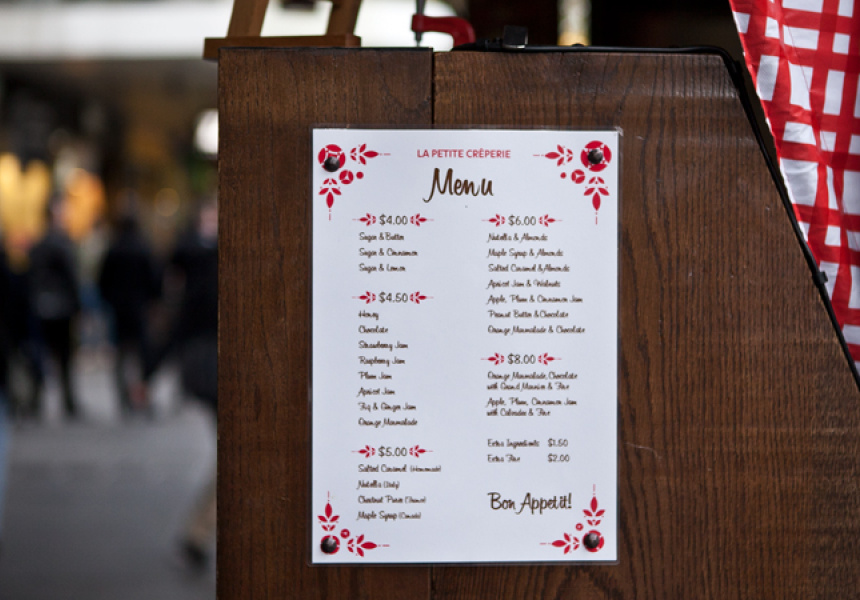 LA PETITE CRÊPERIE
Menu
$4.00
Sugar & Butter
Sugar & Cinnamon
Sugar & Lemon
$4.50
Honey
Chocolate
Strawberry Jam
Raspberry Jam
Plum Jam
Apricot Jam
Fig & Ginger Jam
Orange Marmalade
$5.00
Salted Caramel (Homemade)
Nutella (Italy)
Chestnut Puree (France)
Maple Syrup (Canada)
$6.00
Nutella & Almonds
Maple Syrup & Almonds
Salted Caramel & Almonds
Apricot Jam & Walnuts
Apple, Plum & Cinnamon Jam
Peanut Butter & Chocolate
Orange Marmalade & Chocolate
$8.00
Orange Marmalade, Chocolate
with Grand Marnier & Fire
Apple, Plum, Cinnamon Jam
with Calvados & Fire
Extra Ingredients $1.50
Extra Fire $2.00
Bon Appetit!